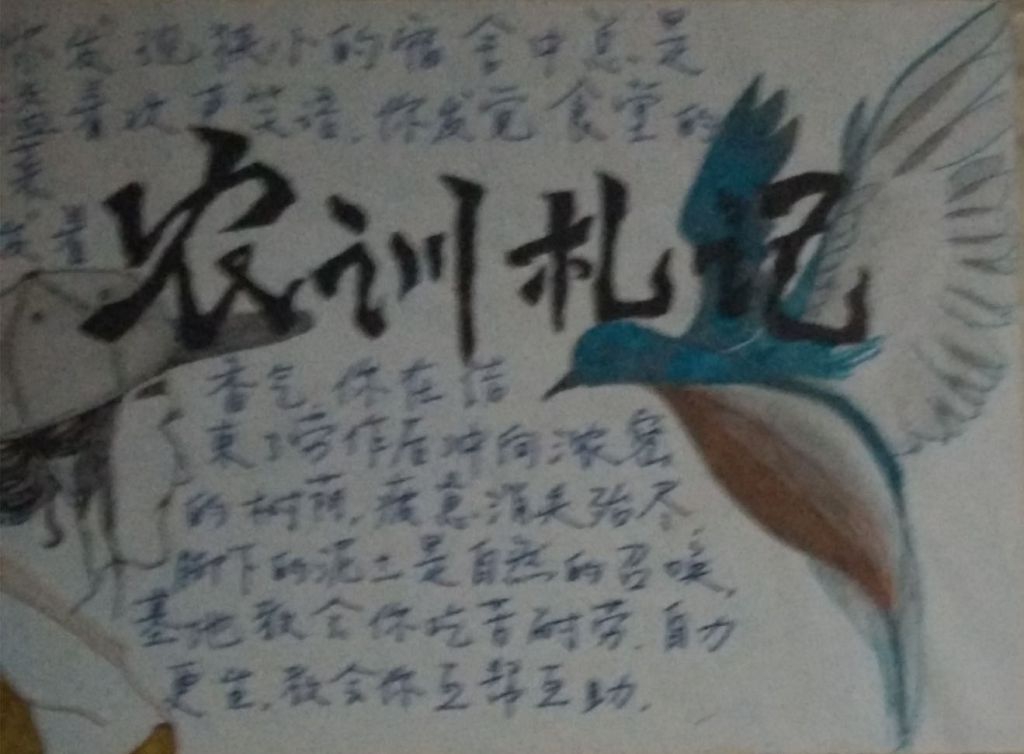 你发现狭小的宿舍中总是
盈着欢声笑语,你发觉食堂的
菜
发着
农训札记
香气,你在结
束了劳作后冲向浓密
的树荫,疲惫消失殆尽
脚下的泥土是自然的召唤,
基地教会你吃苦耐劳,自力
更生,教会你互帮互助.